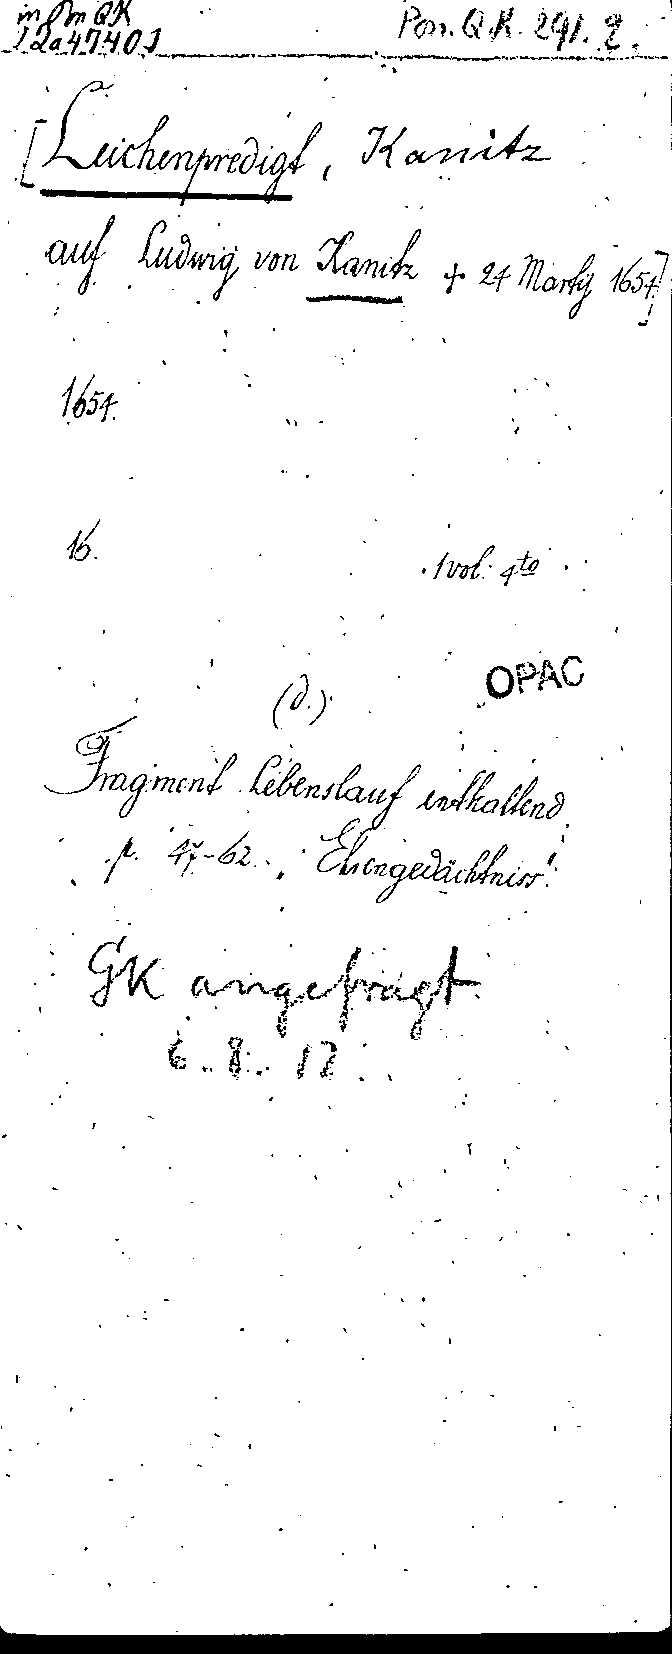 in Pon QK
12a4740]
Pon. QK. 291. 2.
[Leichenpredigt, Kanitz
auf Ludwig von Kanitz + 24 Martij 1654]
1654.
16.
1 vol. 4to
(d.)
OPAC
Fragment Lebenslauf enthaltend
p. 47-62. "Ehrengedächtniss"
GK angefragt
6. 8. 12